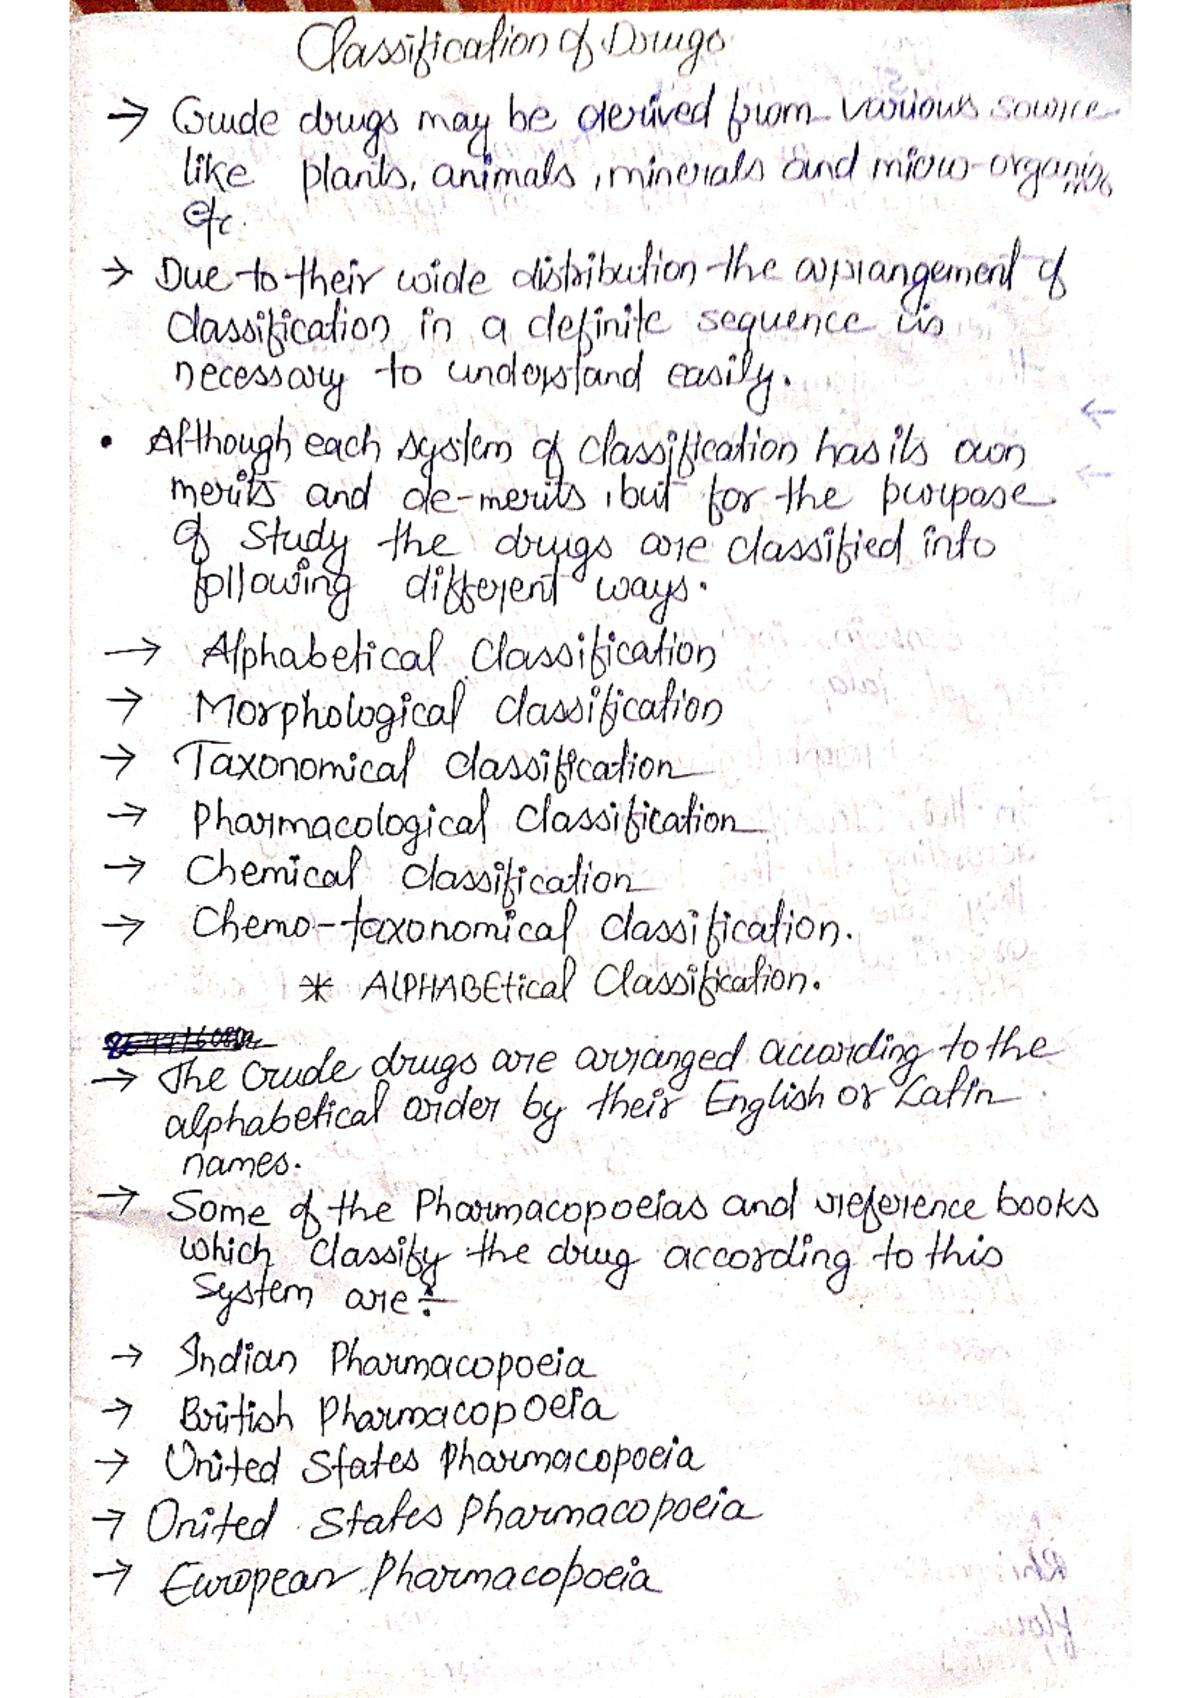 Classification of Drugs
→ Crude drugs may be derived from various source
like plants, animals, minerals and micro-organis
etc.
→ Due to their wide distribution the arrangement of
classification in a definite sequence is
necessary to understand easily.
• Although each system of classification has its own
merits and de-merits, but for the purpose
of study the drugs are classified into
following different ways.
→ Alphabetical classification
→ Morphological classification
→ Taxonomical classification
→ Pharmacological classification
→ Chemical classification
→ Chemo-taxonomical classification.
* ALPHABEtical Classification.
→ The crude drugs are arranged according to the
alphabetical order by their English or Latin
names.
→ Some of the Pharmacopoeias and reference books
which classify the drug according to this
system are ÷
→ Indian Pharmacopoeia
→ British Pharmacopoeia
→ United States Pharmacopoeia
→ United States Pharmacopoeia
→ European Pharmacopoeia